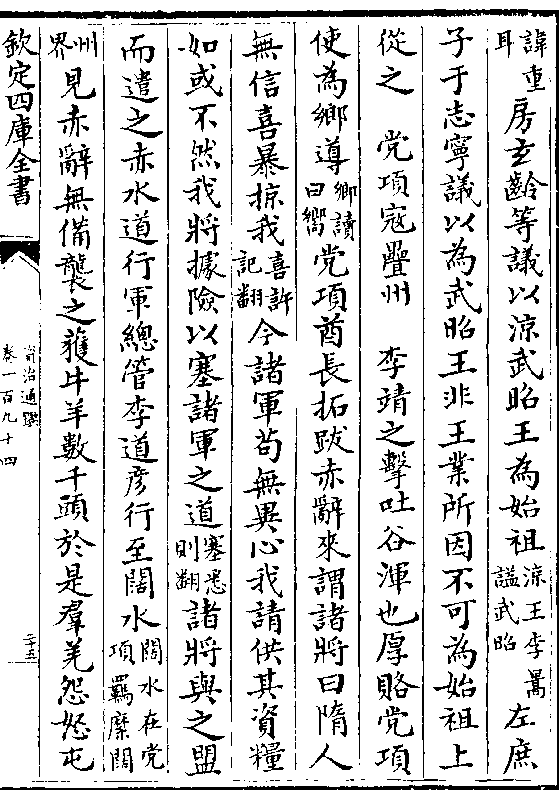 諱重耳房玄齡等議以涼武昭王為始祖涼王李暠諡武昭左庶
子于志寧議以為武昭王非王業所因不可為始祖上
從之 党項寇疊州 李靖之擊吐谷渾也厚賂党項
使為鄉導鄉讀曰嚮党項酋長拓跋赤辭來謂諸將曰隋人
無信喜暴掠我喜許記翻今諸軍苟無異心我請供其資糧
如或不然我將據險以塞諸軍之道塞悉則翻諸將與之盟
而遣之赤水道行軍總管李道彦行至闊水闊水在党項羈縻闊
州界見赤辭無備襲之獲牛羊數千頭於是羣羌怨怒屯
欽定四庫全書
資治通鑑
卷一百九十四
三十五